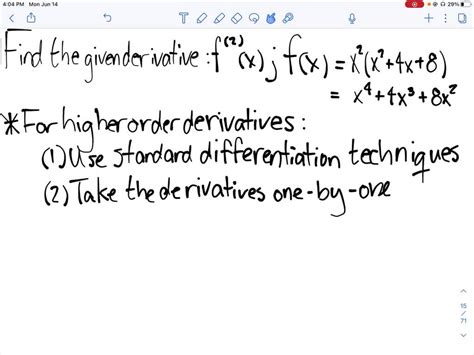 4:04 PM Mon Jun 14
29%
Find the given derivative: f^(2)(x); f(x) = x²(x²+4x+8)
= x⁴+4x³+8x²
*For higher order derivatives:
(1) Use standard differentiation techniques
(2) Take the derivatives one-by-one
15
/
71